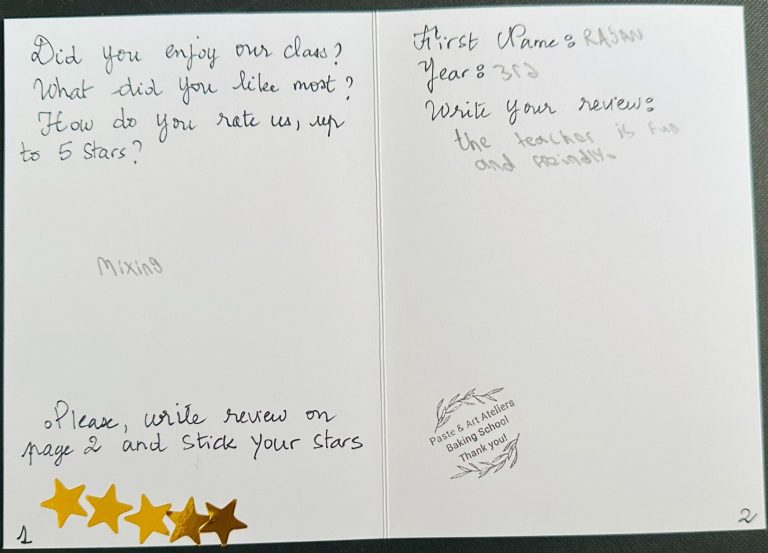 Did you enjoy our class?
What did you like most?
How do you rate us, up
to 5 stars?
Mixing
Please, write review on
page 2 and stick your stars
1
First Name: RAJAN
Year: 3rd
Write your review:
the teacher is fun
and freindly.
Paste & Art Ateliers
Baking School
Thank you!
2